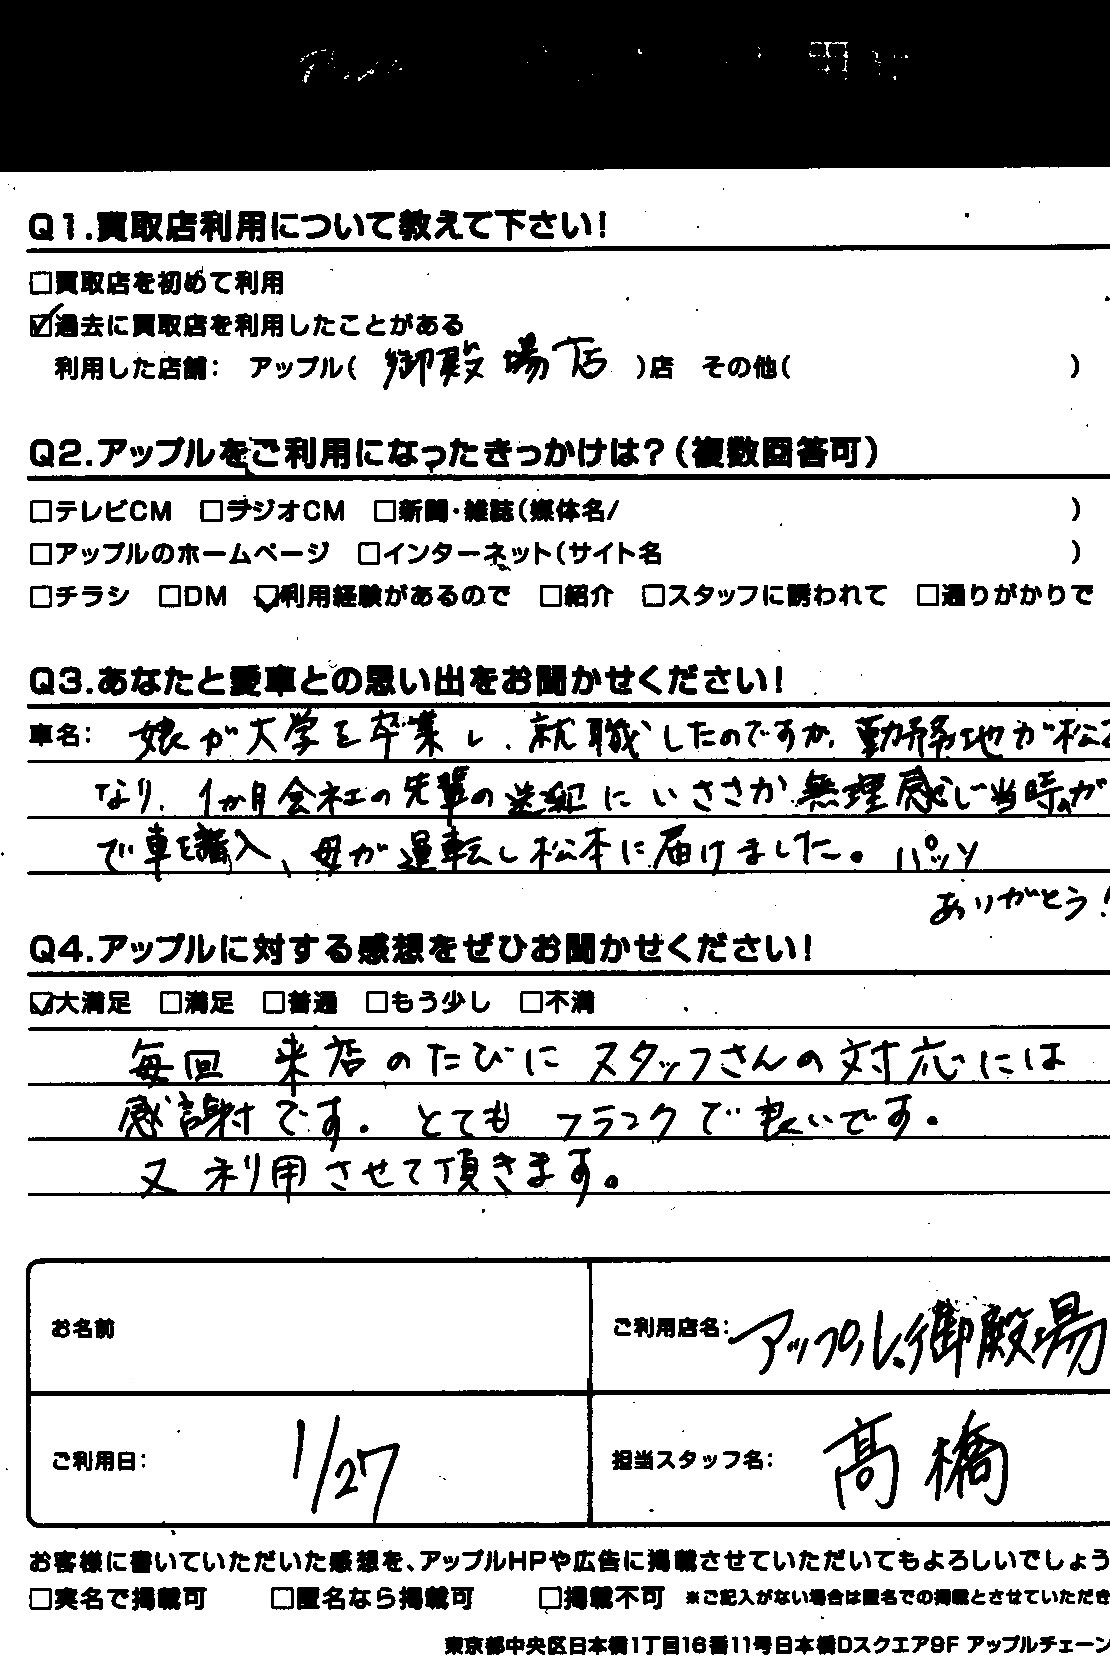 Q1.買取店利用について教えて下さい!
□買取店を初めて利用
☑過去に買取店を利用したことがある
利用した店舗: アップル( 御殿場店 )店 その他( )
Q2.アップルをご利用になったきっかけは?(複数回答可)
□テレビCM □ラジオCM □新聞・雑誌(媒体名/ )
□アップルのホームページ □インターネット(サイト名 )
□チラシ □DM ☑利用経験があるので □紹介 □スタッフに誘われて □通りがかりで
Q3.あなたと愛車との思い出をお聞かせください!
車名: 娘が大学を卒業し、就職したのですが、勤務地が松本
なり、1か月会社の先輩の送迎にいささか無理感じ当時が
で車を購入、母が運転し松本に届けました。パッソ
ありがとう!
Q4.アップルに対する感想をぜひお聞かせください!
☑大満足 □満足 □普通 □もう少し □不満
毎回 来店のたびにスタッフさんの対応には
感謝です。とても フランクで良いです。
又 利用させて頂きます。
お名前
ご利用店名: アップル御殿場
ご利用日: 1/27
担当スタッフ名: 髙橋
お客様に書いていただいた感想を、アップルHPや広告に掲載させていただいてもよろしいでしょう
□実名で掲載可 □匿名なら掲載可 □掲載不可 ※ご記入がない場合は匿名での掲載とさせていただき
東京都中央区日本橋1丁目16番11号日本橋Dスクエア9F アップルチェーン